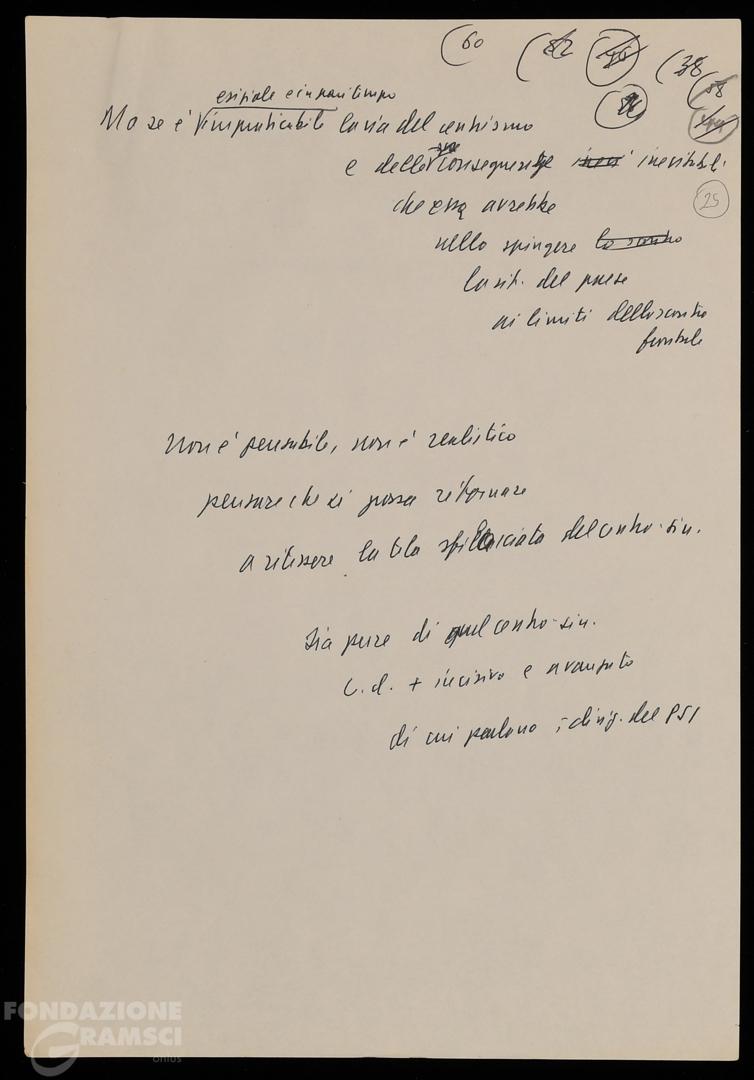 (60
(82
(38
25
esiziale e in pari tempo
Ma se è impraticabile la via del centrismo
sue
e delle conseguenze inevitabili
che essa avrebbe
nello spingere lo scontro
la sit. del paese
ai limiti dello scontro
frontale
Non è pensabile, non è realistico
pensare che si possa ritornare
a ritessere la tela sfilacciata del centro-sin.
Sia pure di quel centro-sin.
c.d. + incisivo e avanzato
di cui parlano i dirig. del PSI
FONDAZIONE
GRAMSCI
onlus